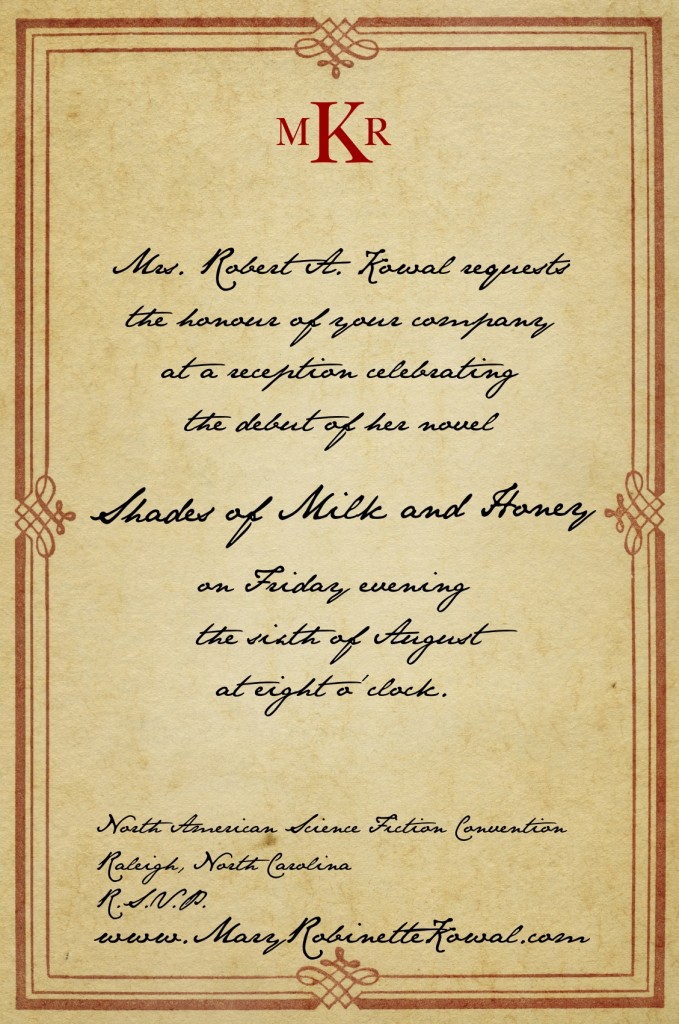 MKR
Mrs. Robert A. Kowal requests
the honour of your company
at a reception celebrating
the debut of her novel
Shades of Milk and Honey
on Friday evening
the sixth of August
at eight o'clock.
North American Science Fiction Convention
Raleigh, North Carolina
R.S.V.P.
www.MaryRobinetteKowal.com